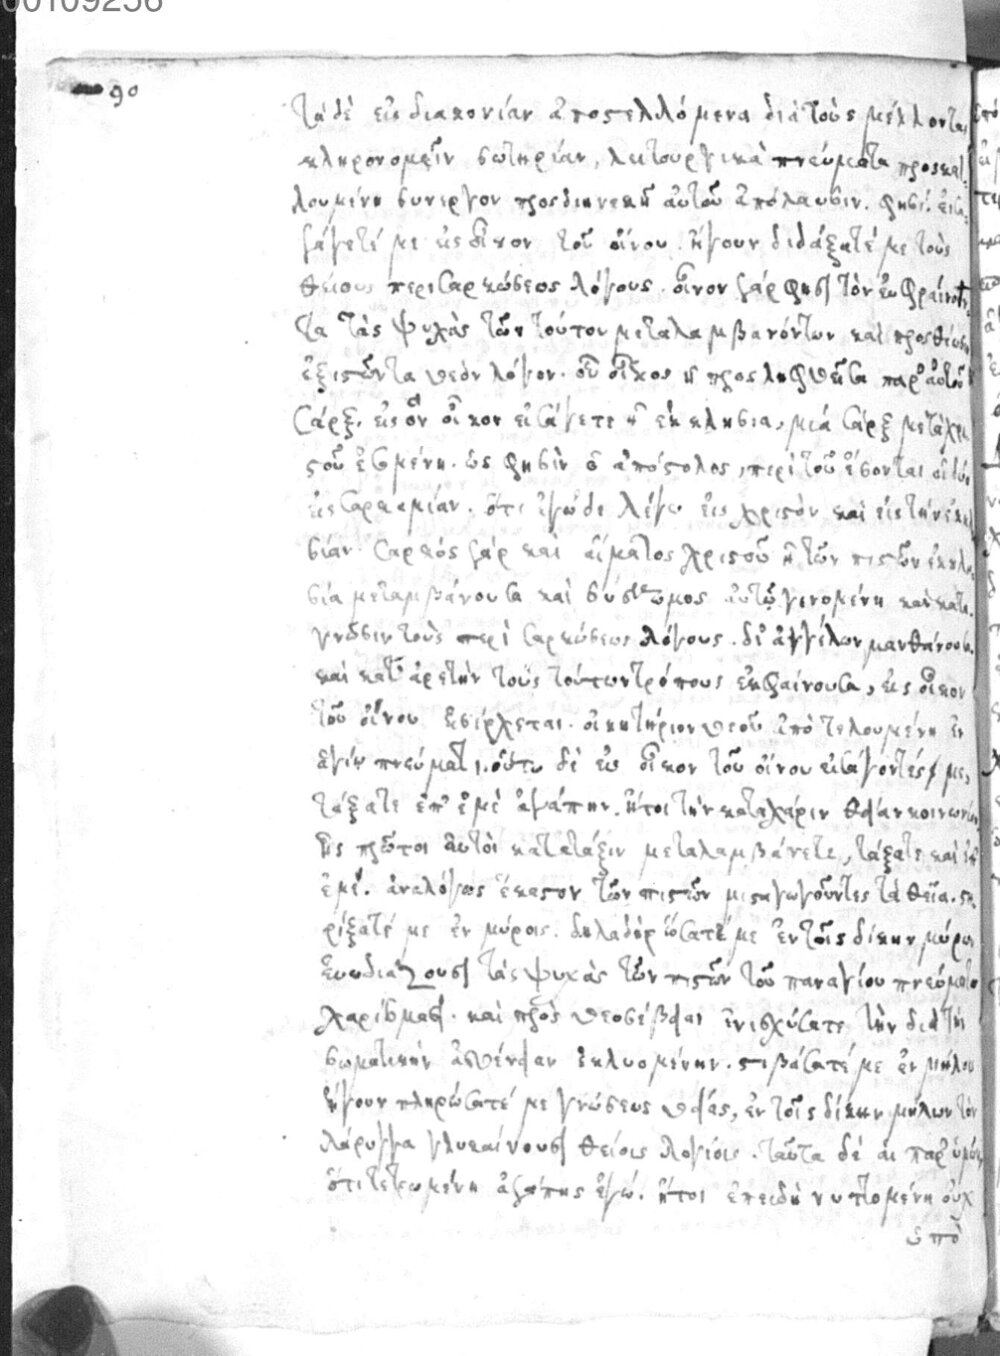 00109256
90
τὰ δὲ εἰς διακονίαν ἀποστελλόμενα διὰ τοὺς μέλλοντας
κληρονομεῖν σωτηρίαν, λειτουργικὰ πνεύματα προσκα
λουμένη συνεργὸν πρὸς διηνεκῆ αὐτοῦ ἀπόλαυσιν. φησί.
γάγετέ με εἰς οἶκον τοῦ οἴνου. ἤγουν διδάξατέ με τοὺς
θείους περὶ σαρκώσεως λόγους. οἶνον γάρ φησι τὸν εὐφραίνο
τα τὰς ψυχὰς τῶν τούτου μεταλαμβανόντων καὶ προσθέσ
ἐξιστῶντα θεὸν λόγον. οὗ οἶκος ἡ προσληφθεῖσα παρ' αὐτοῦ
σάρξ. εἰς ὃν οἶκον εἰσάγεται ἡ ἐκκλησία, μιὰ σὰρξ μετὰ χρι
στοῦ ἐσομένη. ὥς φησιν ὁ ἀπόστολος, περὶ τοῦ ἔσονται οἱ δύο
εἰς σάρκα μίαν. ὅτι ἐγὼ δὲ λέγω εἰς χριστὸν καὶ εἰς τὴν ἐκκλ
σίαν. σαρκὸς γὰρ καὶ αἵματος χριστοῦ ἡ τῶν πιστῶν ἐκκλη
σία μεταμβάνουσα καὶ σύσσωμος αὐτῷ γενομένη καὶ κατὰ
γνῶσιν τοὺς περὶ σαρκώσεως λόγους. δι' ἀγγέλων μανθάνουσα
καὶ κατ' ἀρετὴν τοὺς τούτων τρόπους ἐκφαίνουσα, εἰς οἶκον
τοῦ οἴνου εἰσέρχεται. οἰκητήριον θεοῦ ἀποτελουμένη ἐν
ἁγίῳ πνεύματι. οὕτω δὲ εἰς οἶκον τοῦ οἴνου εἰσάγοντές με,
τάξατε ἐπ' ἐμὲ ἀγάπην. ἤτοι τὴν κατὰ χάριν θείαν κοινωνίαν
ἧς πρῶτοι αὐτοὶ κατὰ τάξιν μεταλαμβάνετε, τάξατε καὶ ἐπ'
ἐμέ. ἀναλόγως ἕκαστον τῶν πιστῶν μισταγωγοῦντες τὰ θεῖα. στη
ρίξατέ με ἐν μύροις. δηλαδὴ ῥώσατέ με ἐν τοῖς δίκην μύρου
εὐωδιάζουσι τὰς ψυχὰς τῶν πιστῶν τοῦ παναγίου πνεύματο
χαρίσμασι. καὶ πρὸς θεοσέβειαν ἐνισχύσατε τὴν διὰ τὴν
σωματικὴν ἀσθένειαν ἐκλυομένην. στιβάσατέ με ἐν μήλοις
ἤγουν πληρώσατέ με γνώσεως θείας, ἐν τοῖς δίκην μήλων τὸν
λάρυγγα γλυκαίνουσι θείοις λογίοις. ταῦτα δὲ αἰ παρ' ὑμῶν
ὅτι τετρωμένη ἀγάπης ἐγώ. ἤτοι ἐπειδὴ νυττομένη οὐχ
ὑπὸ